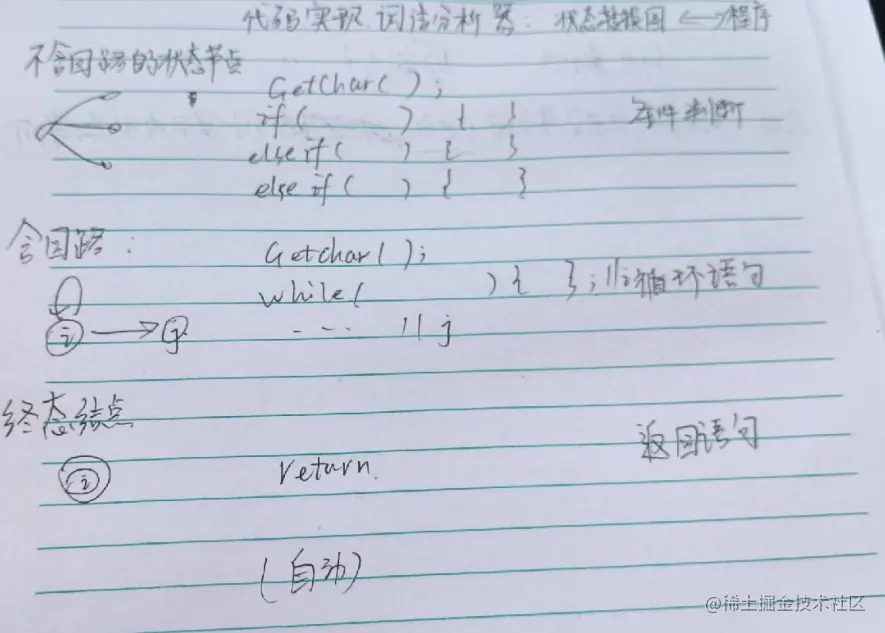 代码实现词法分析器：状态转换图 <—>程序
不含回路的状态节点
GetChar();
if( ) { } 条件判断
else if( ) { }
else if( ) { }
含回路：
Getchar();
while( ) { };//i循环语句
i j ... // j
终态结点
i return. 返回语句
(自动)
@稀土掘金技术社区